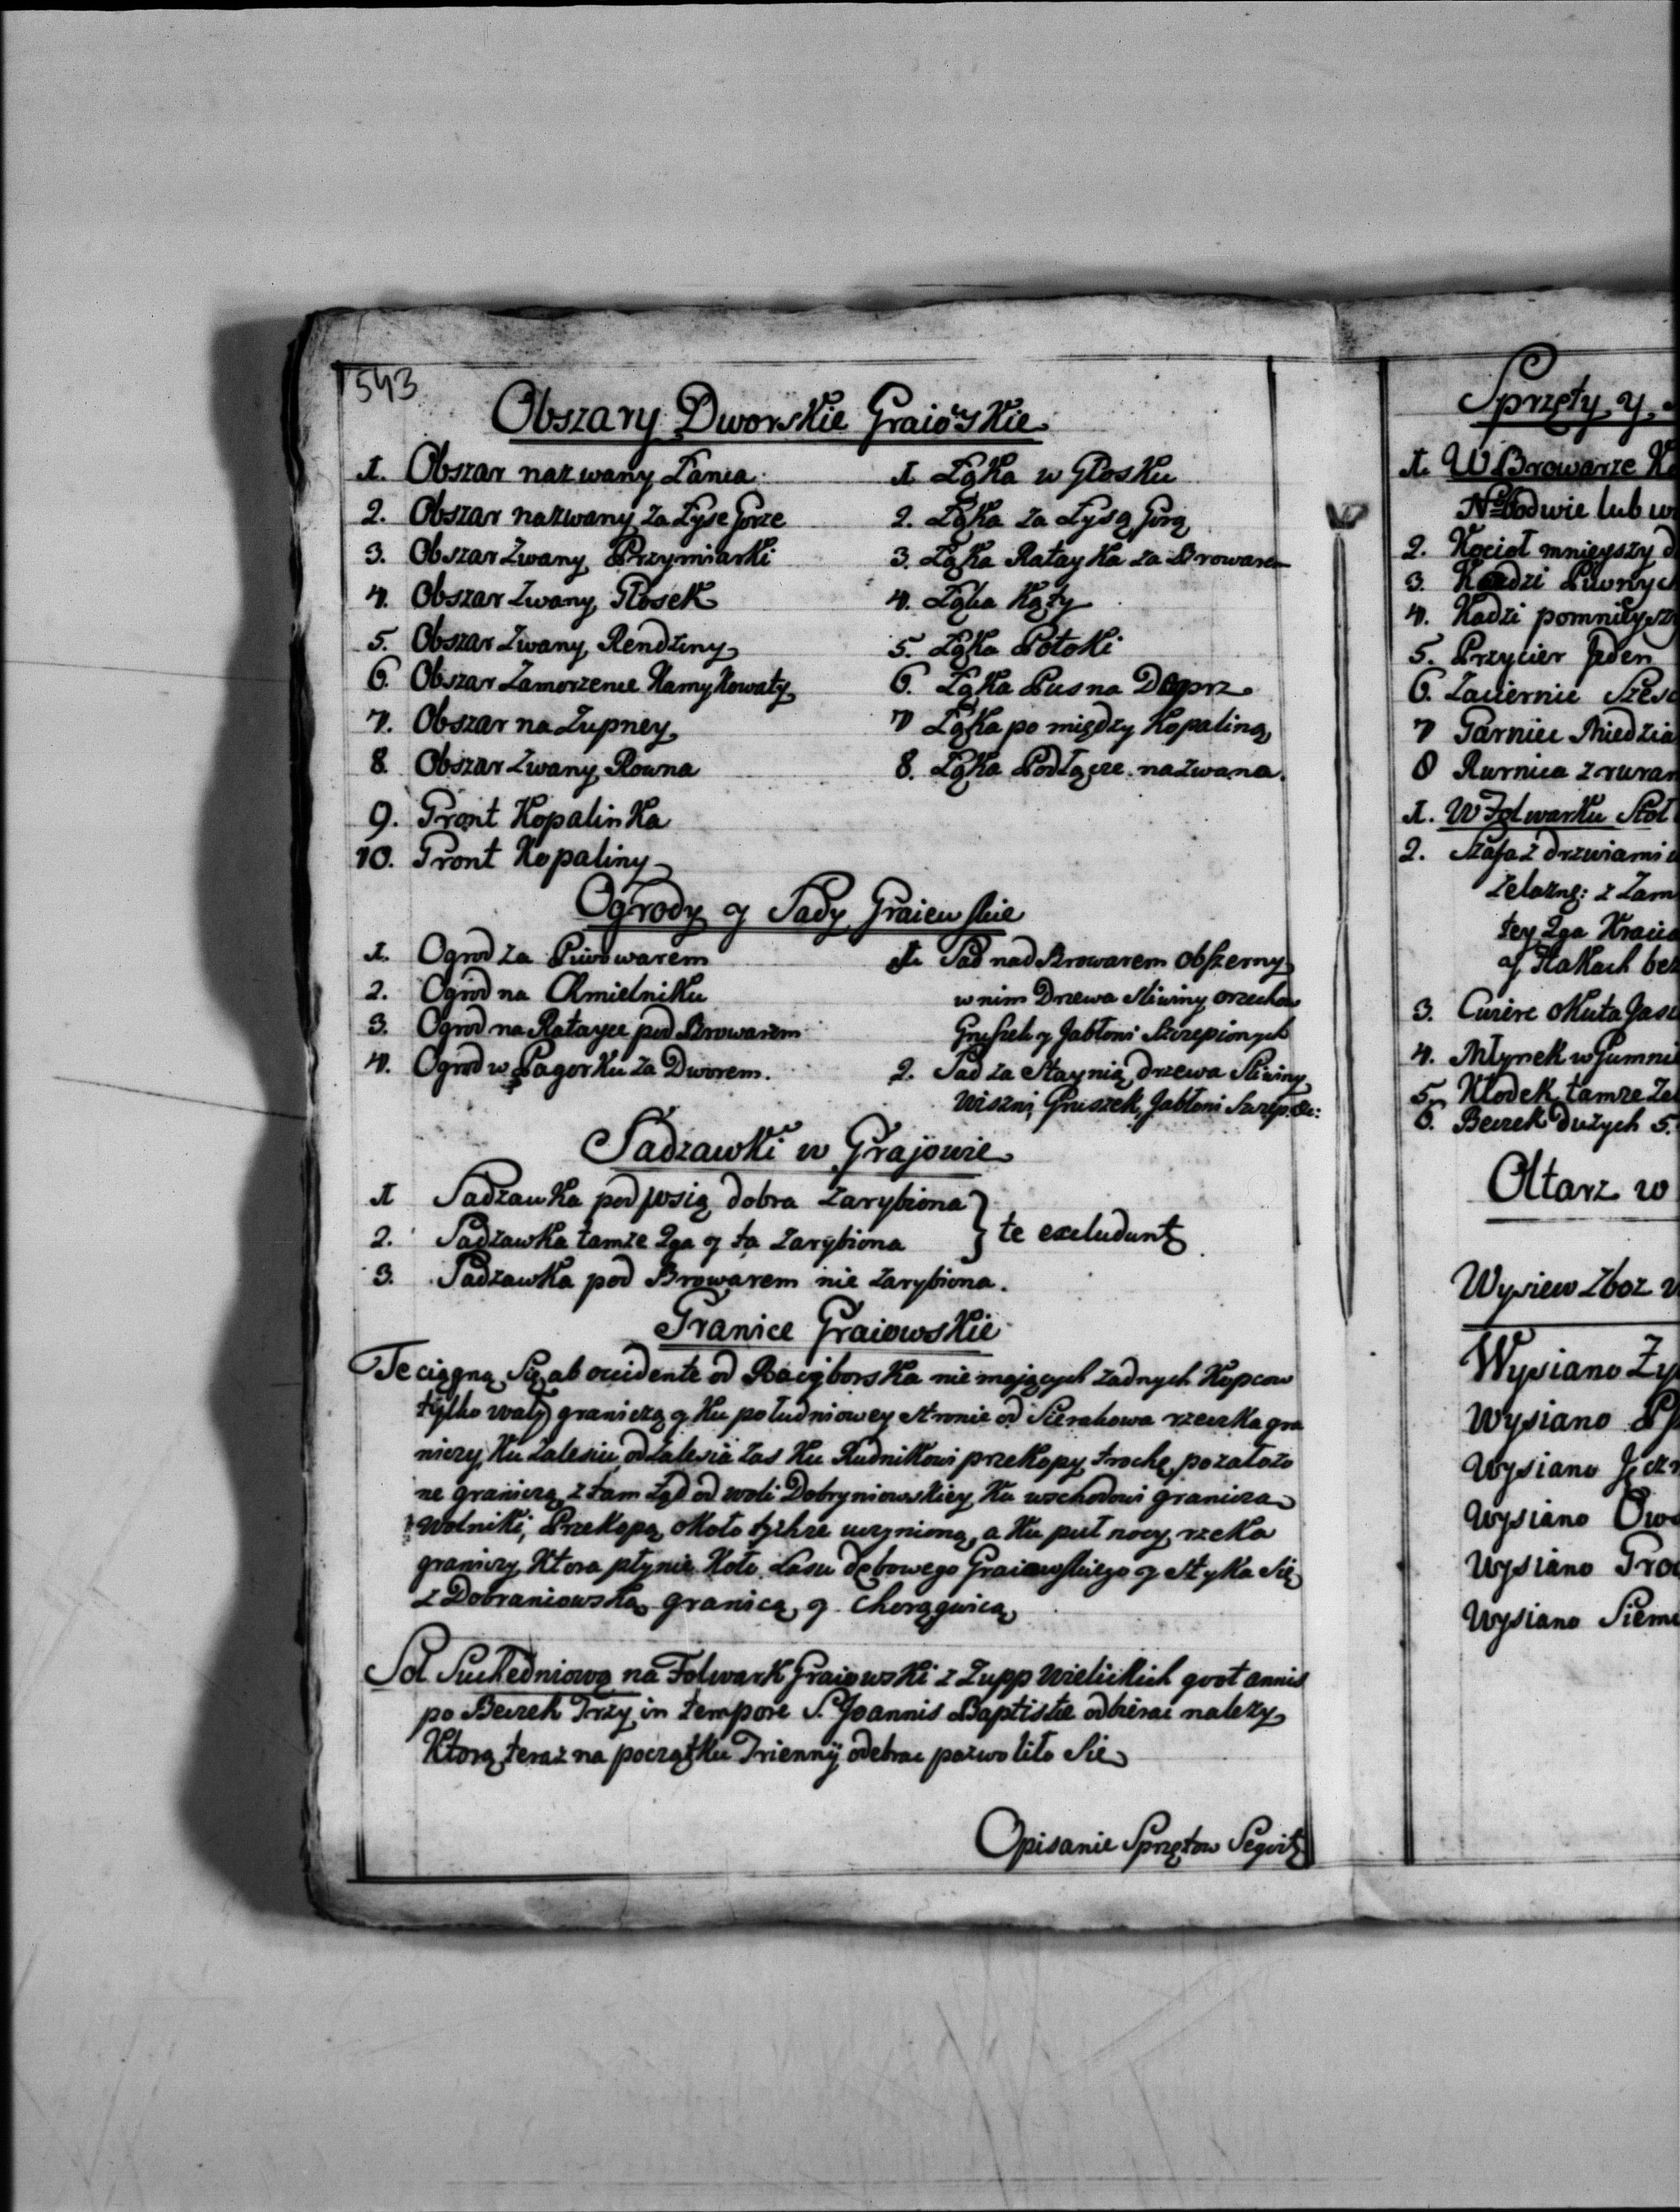 543
Obszary Dworskie Graiowskie
1. Obszar nazwany Łania
2. Obszar nazwany za Łyse Gorze
3. Obszar zwany Przymiarki
4. Obszar zwany Głosek
5. Obszar zwany Rendziny
6. Obszar Zamorzenie Kamykowaty
7. Obszar na Zupney
8. Obszar zwany Rowna
9. Gront Kopalinka
10. Gront Kopaliny
1. Łąka w Głosku
2. Łąka za Łysą Gorą
3. Łąka Ratayka za Browarem
4. Łąka Kąty
5. Łąka Potoki
6. Łąka Pusna Debrz
7 Łąka po między Kopaliną
8. Łąka Podłącze nazwana.
Ogrody y Sady Graiewskie
1. Ogrod za Piwowarem
2. Ogrod na Chmielniku
3. Ogrod na Ratayce pod Browarem
4. Ogrod w Pagorku za Dworem.
1. Sad nad Browarem obszerny
w nim Drzewa sliwiny orzechow
Gruszek y Jabłoni Szczepionych
2. Sad za Staynią drzewa Sliwiny
Wiszni, Gruszek, Jabłoni Szczep. &c:
Sadzawki w Grajowie
1 Sadzawka pod wsią dobra zarybiona
2. Sadzawka tamze 2ga y ta zarybiona
te excludunt
3. Sadzawka pod Browarem nie zarybiona.
Granice Graiowskie
Te ciągną Się ab occidente od Raciborska nie mających zadnych Kopcow
tylko wały graniczą y Ku południowey stronie od Sierakowa rzeczka gra
niczy, Ku Zalesiu, od Zalesia zas Ku Rudnikowi przekopy trochę pozałozo
ne graniczą, z tam tąd od woli Dobryniowskiey Ku wschodowi granicza
Wolniki, Przekopą około tychze uczynioną, a Ku puł nocy, rzeka
graniczy Ktora płynie Koło Lasu dębowego Graiowskiego y styka Się
z Dobraniowską granicą y chorągwicą
Sol Suchedniowa na Folwark Graiowski z Zupp Wielickich qvot annis
po Beczek Trzy in tempore S. Joannis Baptistæ odbierac nalezy
Ktorą teraz na początku Trienny odebrac pozwoliło Sie
Opisanie Sprzętow Seqvit
Sprzęty y
1. W Browarze
lub
2. Kocioł mnieyszy
3. Kadzi Piwnych
4. Kadzi pomnieysz
5. Przycier Jeden
6. Zaciernie Szesc
7 Garniec Miedzia
8 Rurnica z ruram
1. W Folwarku Stoł
2. Szafa z drzwiami
zelazne: z Zam
tey 2ga Kraia
3.
4. Młynek w Gumni
5. Kłodek tamze
6. Beczek duzych 5.
Ołtarz w
Wysiew zboz w
Wysiano Zy
Wysiano
Wysiano Jęcz
Wysiano Ows
Wysiano Groc
Wysiano Siem